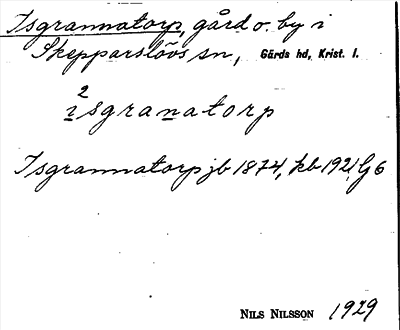 Isgrannatorp, gård o. by i
Skepparslövs sn, Gärds hd, Krist. l.
2
isgranatorp
Isgrannatorp jb 1874, kb 1921 Lg 6
NILS NILSSON 1929